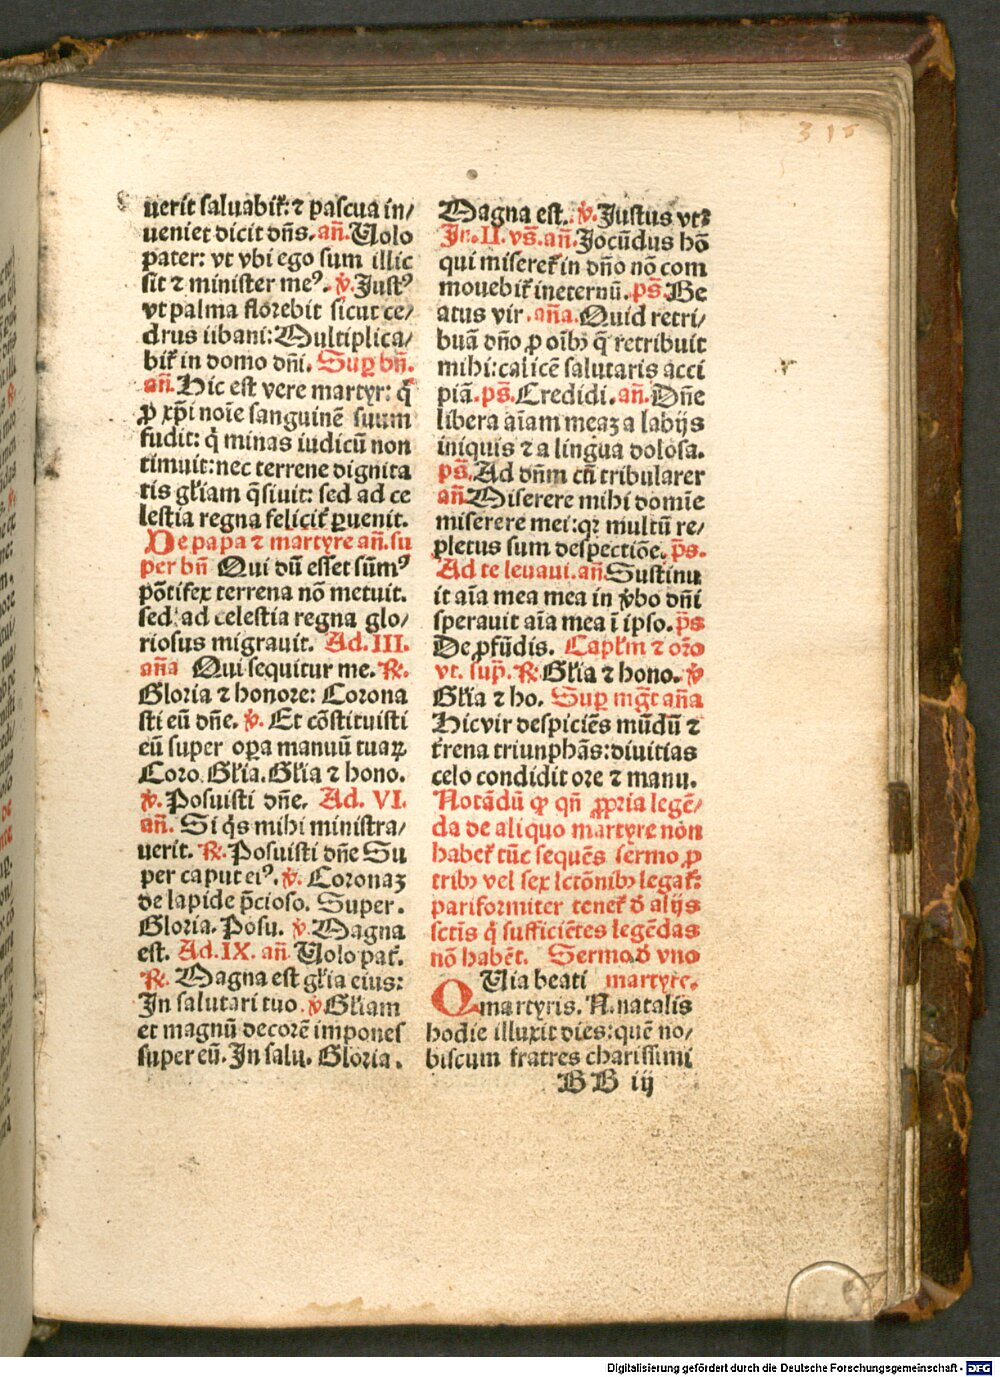 315
uerit saluabit᷑: ⁊ pascua in/
ueniet dicit dn̄s. an̄. Uolo
pater: vt vbi ego sum illic
sit ⁊ minister meꝰ. v̄. Justꝰ
vt palma florebit sicut ce/
drus libani: Multiplica/
bit᷑ in domo dn̄i. Suꝑ bn̄.
an̄. Hic est vere martyr: q̄
ꝓ xp̄i noīe sanguinē suum
fudit: q̇ minas iudicū non
timuit: nec terrene dignita
tis gl̄iam q̄siuit: sed ad ce
lestia regna felicit᷑ ꝑuenit.
De papa ⁊ martyre an̄. su
per bn̄ Qui dū esset sūmꝰ
pōtifex terrena nō metuit.
sed ad celestia regna glo/
riosus migrauit. Ad. III.
an̄a Qui sequitur me. ℟.
Gloria ⁊ honore: Corona
sti eū dn̄e. v̄. Et cōstituisti
eū super oꝑa manuū tuaꝝ
Coro. Gl̄ia. Gl̄ia ⁊ hono.
v̄. Posuisti dn̄e. Ad. VI.
an̄. Si q̇s mihi ministra/
uerit. ℟. Posuisti dn̄e Su
per caput eiꝰ. v̄. Coronaꝫ
de lapide p̄cioso. Super.
Gloria. Posu. v̄. Magna
est. Ad. IX. an̄ Uolo pat᷑.
℟. Magna est gl̄ia eius:
In salutari tuo. v̄ Gl̄iam
et magnū decorē impones
super eū. In salu. Gloria.
Magna est. v̄. Justus vtꝛ
In. II. vs̄. an̄. Jocūdus hō
qui miseret᷑ in dn̄o nō com
mouebit᷑ ineternū. ps̄. Be
atus vir. an̄a. Quid retri/
buā dn̄o ꝓ oīb⁹ q̄ retribuit
mihi: calicē salutaris acci
piā. ps̄. Credidi. an̄. Dn̄e
libera aīam meaꝫ a labijs
iniquis ⁊ a lingua dolosa.
ps̄. Ad dn̄m cū tribularer
an̄. Miserere mihi domīe
miserere mei: qꝛ multū re/
pletus sum despectiōe. ps̄.
Ad te leuaui. an̄. Sustinu
it aīa mea mea in v̄bo dn̄i
sperauit aīa mea ī ipso. ps̄
De ꝓfūdis. Capl̄m ⁊ or̄o
vt. sup̄. ℟. Gl̄ia ⁊ hono. v̄
Gl̄ia ⁊ ho. Suꝑ mg̅t an̄a
Hic vir despiciēs mūdū ⁊
t᷑rena triunphās: diuitias
celo condidit ore ⁊ manu.
Notādū ꝙ qn̄ ꝓpria legē/
da de aliquo martyre non
habet᷑ tūc sequēs sermo ꝓ
trib⁹ vel sex lctōnib⁹ legat᷑:
pariformiter tenet᷑ d̄ alijs
sctīs q̇ sufficiētes legēdas
nō habēt. Sermo d̄ vno
martyre.
QUia beati
martyris. N. natalis
hodie illuxit dies: quē no/
biscum fratres charissimi
BB iij
Digitalisierung gefördert durch die Deutsche Forschungsgemeinschaft - DFG